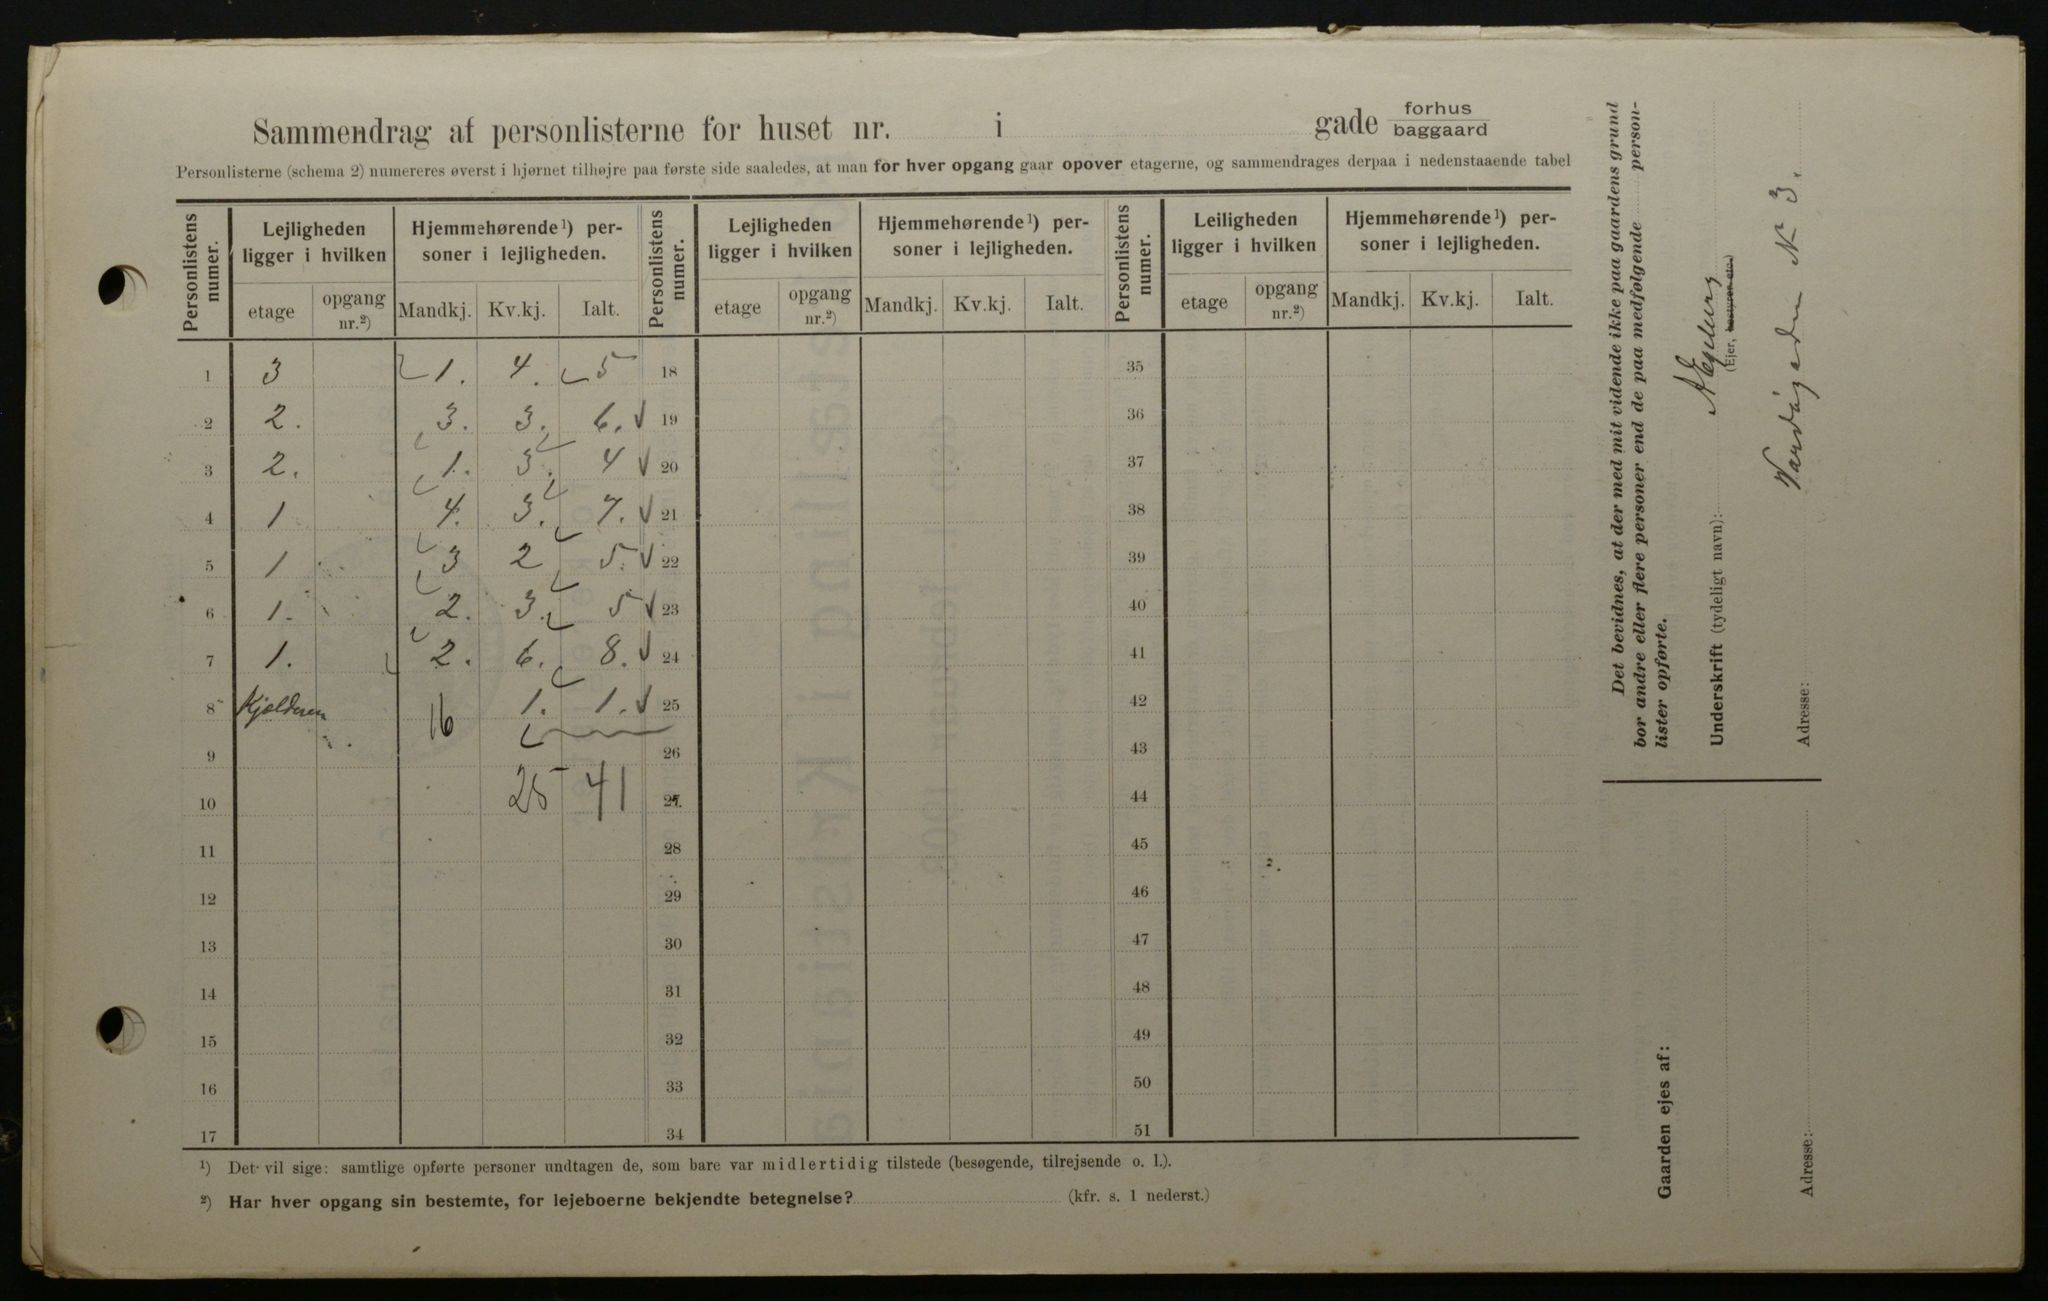 Sammendrag af personlisterne for huset nr. i gade forhus
baggaard
Personlisterne (schema 2) numereres øverst i hjørnet tilhøjre paa første side saaledes, at man for hver opgang gaar opover etagerne, og sammendrages derpaa i nedenstaaende tabel
Personlistens numer. Lejligheden ligger i hvilken Hjemmehørende¹) personer i lejligheden. Personlistens numer. Lejligheden ligger i hvilken Hjemmehørende¹) personer i lejligheden. Personlistens numer. Leiligheden ligger i hvilken Hjemmehørende¹) personer i lejligheden.
etage opgang nr.²) Mandkj. Kv.kj. Ialt. etage opgang nr.²) Mandkj. Kv.kj. Ialt. etage opgang nr.²) Mandkj. Kv.kj. Ialt.
1 3 1. 4. 5 18 35
2 2. 3. 3. 6. 19 36
3 2. 1. 3. 4 20 37
4 1 4. 3. 7. 21 38
5 1 3 2 5. 22 39
6 1. 2. 3. 5 23 40
7 1. 2. 6. 8. 24 41
8 Kjælderen 16 1. 1. 25 42
9 26 43
10 25 41 27. 44
11 28 45
12 29 46
13 30 47
14 31 48
15 32 49
16 33 50
17 34 51
¹) Det vil sige: samtlige opførte personer undtagen de, som bare var midlertidig tilstede (besøgende, tilrejsende o. l.).
²) Har hver opgang sin bestemte, for lejeboerne bekjendte betegnelse? (kfr. s. 1 nederst.)
Det bevidnes, at der med mit vidende ikke paa gaardens grund
bor andre eller flere personer end de paa medfølgende person-
lister opførte.
Underskrift (tydeligt navn):
(Ejer, bestyrer etc.)
Adresse: N 3.
Gaarden ejes af:
Adresse: